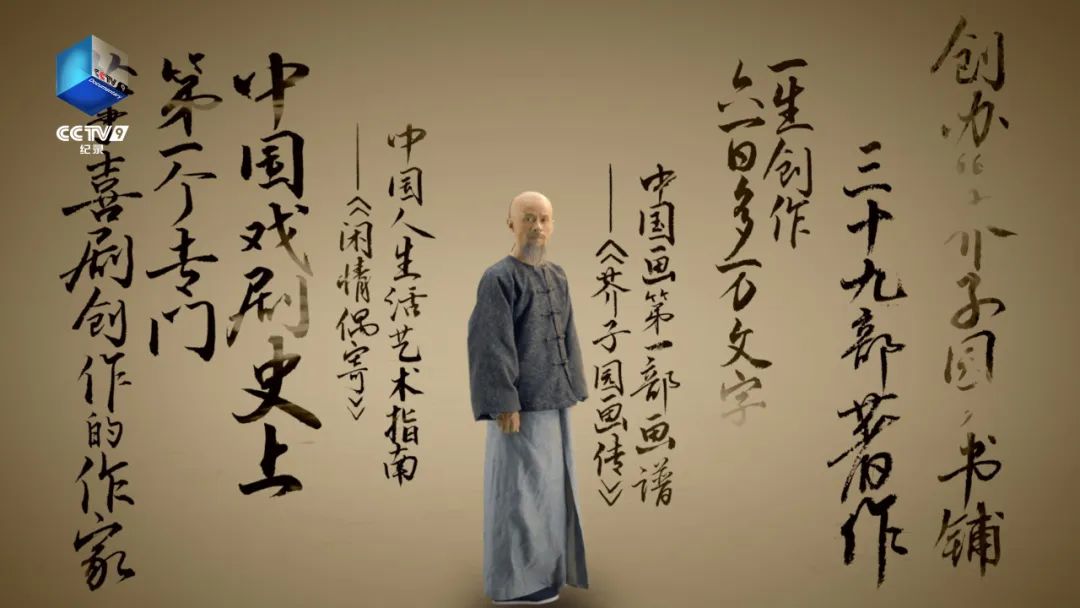 创办“芥子园”书铺
三十九部著作
一生创作
六百多万文字
中国画第一部画谱
——《芥子园画传》
中国人生活艺术指南
——《闲情偶寄》
中国戏剧史上
第一个专门
从事喜剧创作的作家
CCTV9
Documentary
CCTV9
纪录